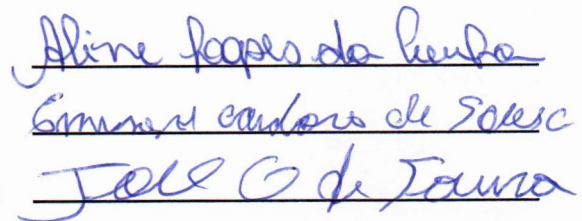 Aline Lopes da Cunha
cardoso de Sousa
José O de Souza